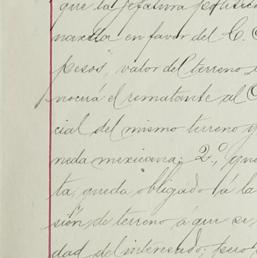 que la jefatura política
en favor del C.
pesos, valor del terreno
nocerá el rematante al
cial del mismo terreno
neda mexicana; 2º, que
ta, queda obligado á la
sión de terreno á que se
dad del interesado; pero